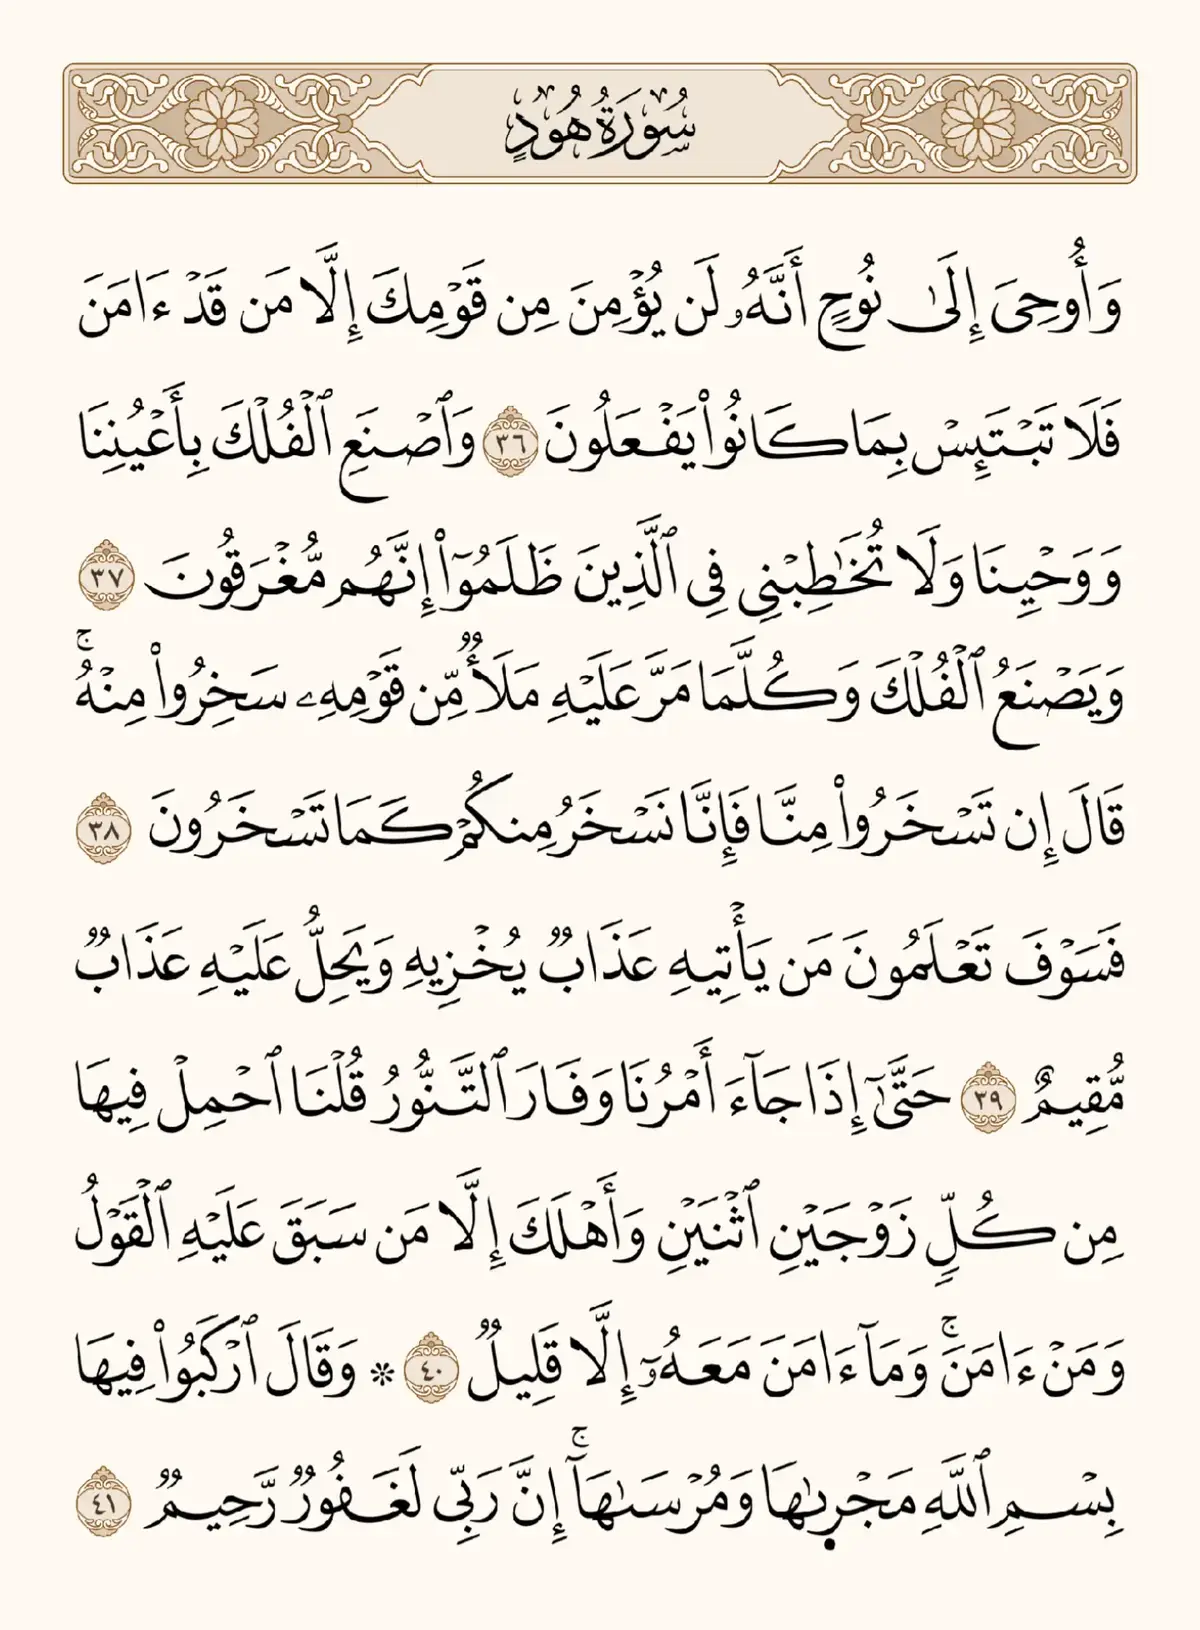 سُورَةُ هُودٍ
وَأُوحِىَ إِلَىٰ نُوحٍ أَنَّهُۥ لَن يُؤْمِنَ مِن قَوْمِكَ إِلَّا مَن قَدْ ءَامَنَ
فَلَا تَبْتَئِسْ بِمَا كَانُوا۟ يَفْعَلُونَ ٣٦ وَٱصْنَعِ ٱلْفُلْكَ بِأَعْيُنِنَا
وَوَحْيِنَا وَلَا تُخَـٰطِبْنِى فِى ٱلَّذِينَ ظَلَمُوٓا۟ إِنَّهُم مُّغْرَقُونَ ٣٧
وَيَصْنَعُ ٱلْفُلْكَ وَكُلَّمَا مَرَّ عَلَيْهِ مَلَأٌ مِّن قَوْمِهِۦ سَخِرُوا۟ مِنْهُ ۚ
قَالَ إِن تَسْخَرُوا۟ مِنَّا فَإِنَّا نَسْخَرُ مِنكُمْ كَمَا تَسْخَرُونَ ٣٨
فَسَوْفَ تَعْلَمُونَ مَن يَأْتِيهِ عَذَابٌ يُخْزِيهِ وَيَحِلُّ عَلَيْهِ عَذَابٌ
مُّقِيمٌ ٣٩ حَتَّىٰٓ إِذَا جَآءَ أَمْرُنَا وَفَارَ ٱلتَّنُّورُ قُلْنَا ٱحْمِلْ فِيهَا
مِن كُلٍّ زَوْجَيْنِ ٱثْنَيْنِ وَأَهْلَكَ إِلَّا مَن سَبَقَ عَلَيْهِ ٱلْقَوْلُ
وَمَنْ ءَامَنَ ۚ وَمَآ ءَامَنَ مَعَهُۥٓ إِلَّا قَلِيلٌ ٤٠ * وَقَالَ ٱرْكَبُوا۟ فِيهَا
بِسْمِ ٱللَّهِ مَجْر۪ىٰهَا وَمُرْسَىٰهَآ ۚ إِنَّ رَبِّى لَغَفُورٌ رَّحِيمٌ ٤١